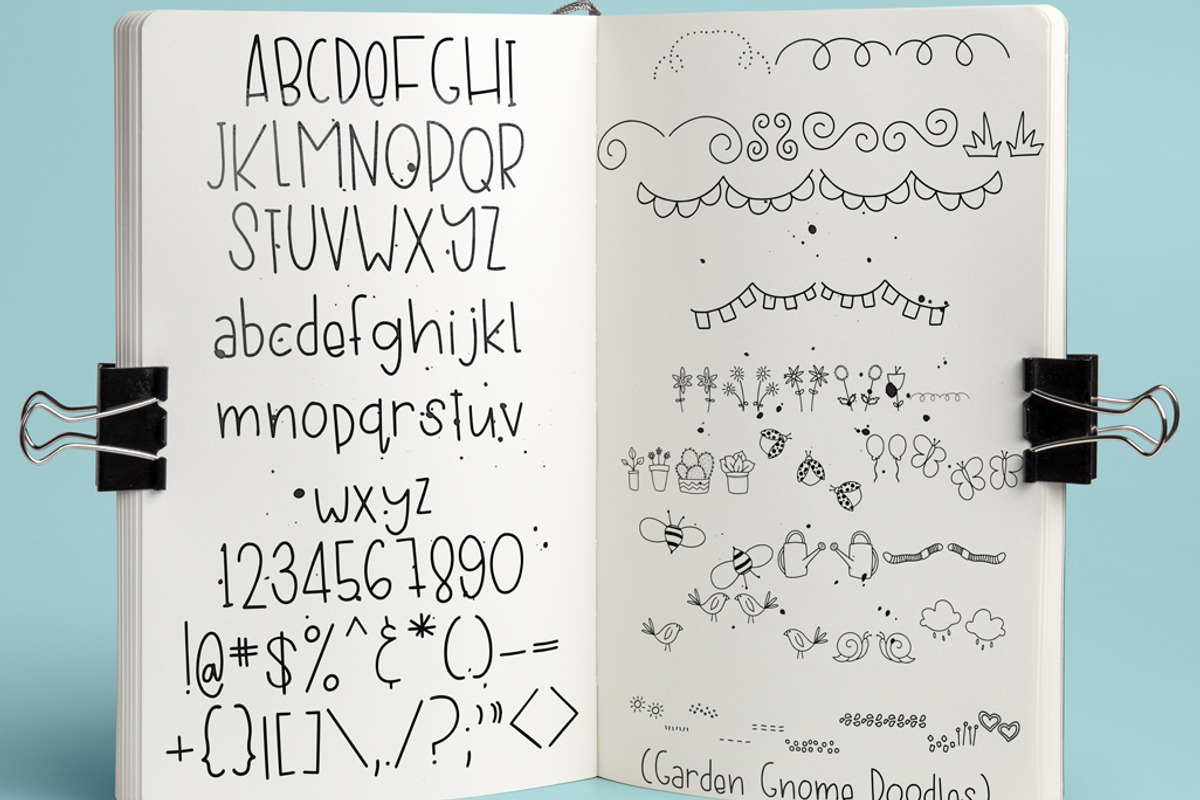 ABCDEFGHI
JKLMNOPQR
STUVWXYZ
abcdefghijkl
mnopqrstuv
wxyz
1234567890
!@#$%^&*()-=
+{}|[]\,./?;'"<>
(Garden Gnome Doodles)